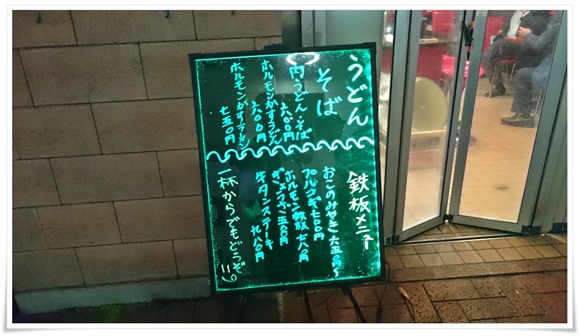 うどん
そば
肉うどん・そば
六〇〇円
ホルモンかすうどん
六〇〇円
ホルモンかすラーメン
七五〇円
鉄板メニュー
おこのみやき 六五〇円〜
プルコギ 七〇〇円
ホルモン鉄板 七八〇円
五〇〇円
牛タンステーキ
九八〇円
一杯からでもどうぞ。